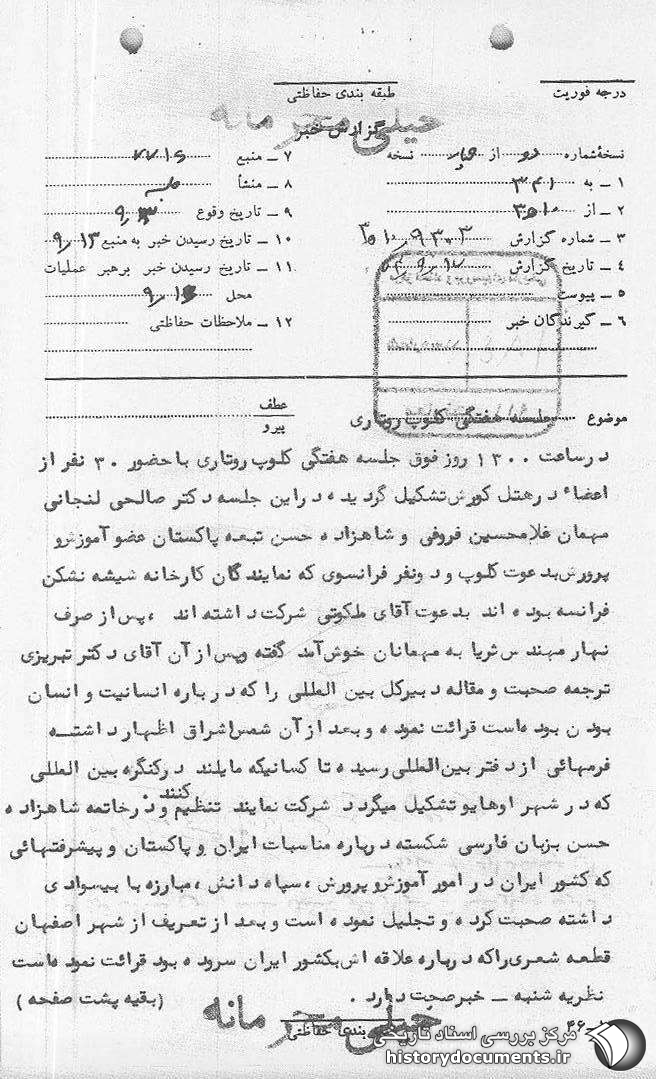 درجه فوریت
طبقه بندی حفاظتی
خیلی محرمانه
گزارش خبر
نسخه شماره دو از چهار نسخه
۱ ـ به ۳۴۱
۲ ـ از ۳۵۱۰
۳ ـ شماره گزارش
۴ ـ تاریخ گزارش
۵ ـ پیوست
۶ ـ گیرندگان خبر
۷ ـ منبع ۷۷۱۵
۸ ـ منشأ
۹ ـ تاریخ وقوع
۱۰ ـ تاریخ رسیدن خبر به منبع ۹٫۱۳
۱۱ ـ تاریخ رسیدن خبر برهبر عملیات
محل
۱۲ ـ ملاحظات حفاظتی
موضوع جلسه هفتگی کلوپ روتاری
عطف
پیرو
در ساعت ۱۳۰۰ روز فوق جلسه هفتگی کلوپ روتاری با حضور ۳۰ نفر از
اعضاء در هتل کورش تشکیل گردیده در این جلسه دکتر صالحی لنجانی
مهمان غلامحسین فروفی و شاهزاده حسن تبعه پاکستان عضو آموزش و
پرورش بدعوت کلوپ و دو نفر فرانسوی که نمایندگان کارخانه شیشه نشکن
فرانسه بوده اند بدعوت آقای ملکوتی شرکت داشته اند ، پس از صرف
نهار مهندس ثریا به مهمانان خوش آمد گفته و پس از آن آقای دکتر تبریزی
ترجمه صحبت و مقاله دبیرکل بین المللی را که درباره انسانیت و انسان
بودن بوده است قرائت نموده و بعد از آن شمس اشراق اظهار داشتـه
فرمهائی از دفتر بین المللی رسیده تا کسانیکه مایلند در کنگره بین المللی
که در شهر اوهایو تشکیل میگردد شرکت نمایند تنظیم کنند . و در خاتمه شاهزاده
حسن بزبان فارسی شکسته درباره مناسبات ایران و پاکستان و پیشرفتهائی
که کشور ایران در امور آموزش و پرورش ، سپاه دانش ، مبارزه با بیسوادی
داشته صحبت کرده و تجلیل نموده است و بعد از تعریف از شهر اصفهان
قطعه شعری را که درباره علاقه اش بکشور ایران سروده بود قرائت نموده است
نظریه شنبه ـ خبر صحت دارد . (بقیه پشت صفحه )
خیلی محرمانه
طبقه بندی حفاظتی
مرکز بررسی اسناد تاریخی
historydocuments.ir